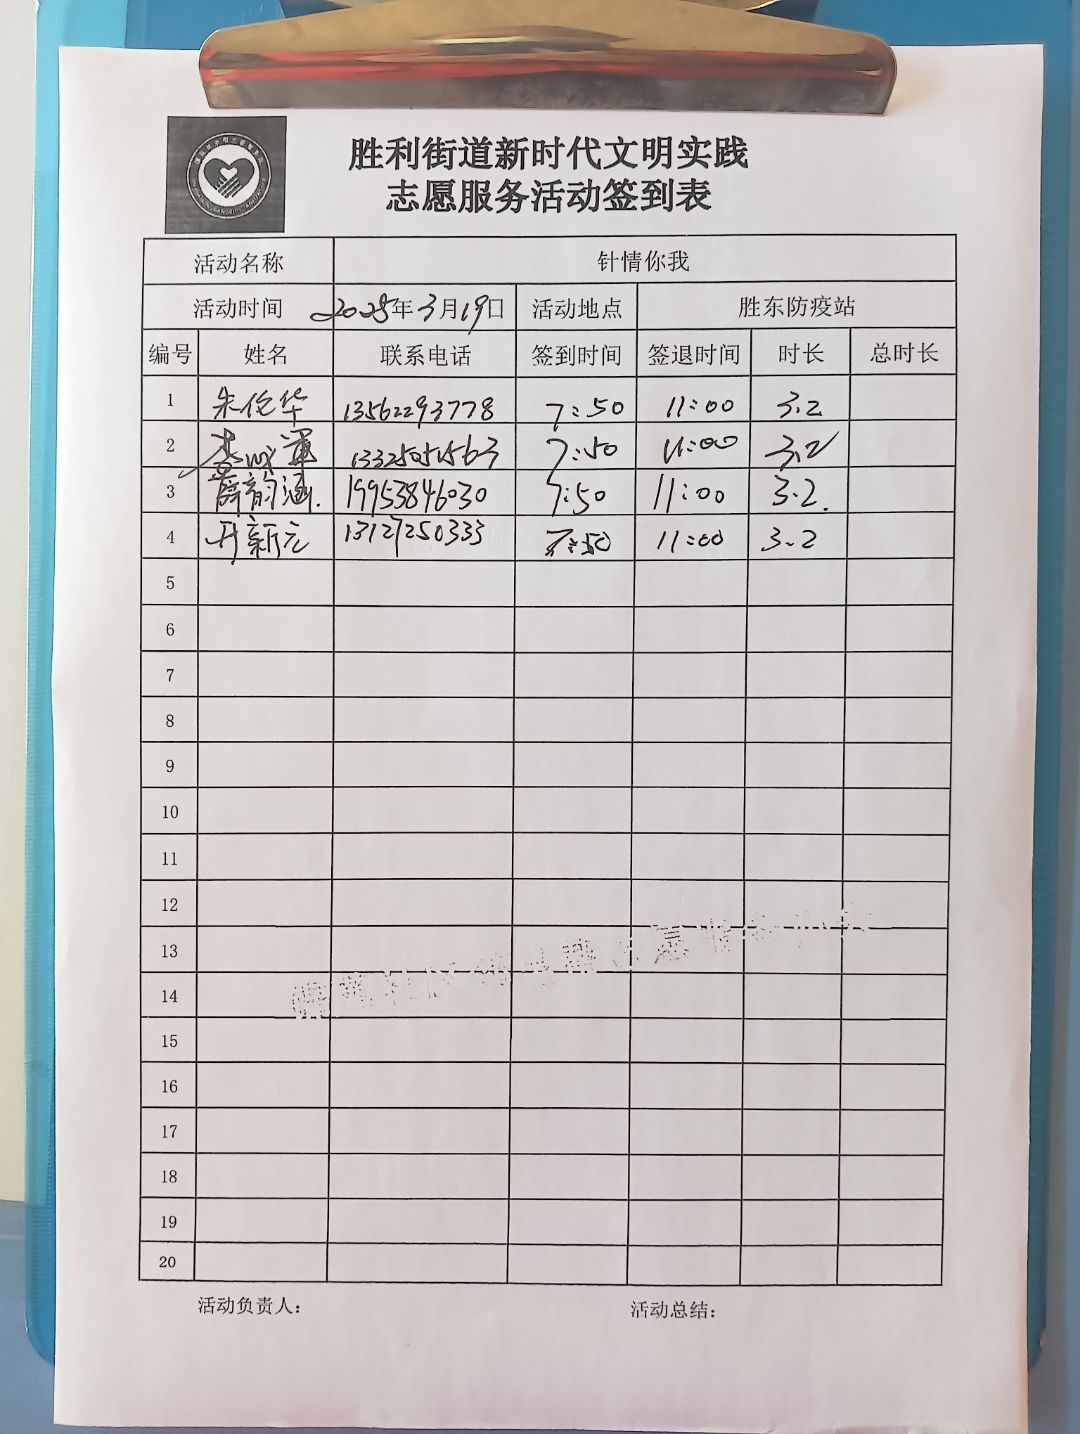 胜利街道新时代文明实践
志愿服务活动签到表
活动名称 针情你我
活动时间 2025年3月19日 活动地点 胜东防疫站
编号 姓名 联系电话 签到时间 签退时间 时长 总时长
1 朱伦华 13562293778 7:50 11:00 3.2
2 7:50 11:00 3.2
3 薛韵涵. 19953846030 7:50 11:00 3.2.
4 新元 13127250333 7:50 11:00 3.2
5
6
7
8
9
10
11
12
13
14
15
16
17
18
19
20
活动负责人: 活动总结: